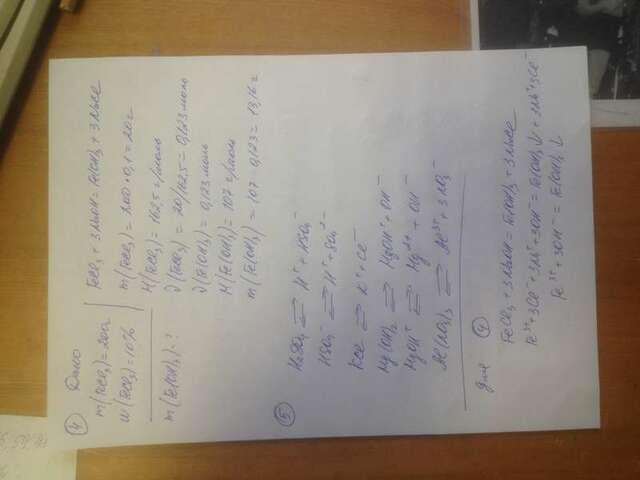 ④ Дано
m(FeCl₃) = 200г
w(FeCl₃) = 10%
m(Fe(OH)₃) - ?
FeCl₃ + 3NaOH = Fe(OH)₃ + 3NaCl
m(FeCl₃) = 200 • 0,1 = 20г
M(FeCl₃) = 162,5 г/моль
ν(FeCl₃) = 20/162,5 = 0,123 моль
ν(Fe(OH)₃) = 0,123 моль
M(Fe(OH)₃) = 107 г/моль
m(Fe(OH)₃) = 107 · 0,123 = 13,16 г
⑤
H₂SO₄ ⇄ H⁺ + HSO₄⁻
HSO₄⁻ ⇄ H⁺ + SO₄²⁻
KCl ⇄ K⁺ + Cl⁻
Mg(OH)₂ ⇄ MgOH⁺ + OH⁻
MgOH⁺ ⇄ Mg²⁺ + OH⁻
Al(NO₃)₃ ⇄ Al³⁺ + 3NO₃⁻
для ④
FeCl₃ + 3NaOH = Fe(OH)₃ + 3NaCl
Fe³⁺ + 3Cl⁻ + 3Na⁺ + 3OH⁻ = Fe(OH)₃↓ + 3Na⁺ + 3Cl⁻
Fe³⁺ + 3OH⁻ = Fe(OH)₃↓